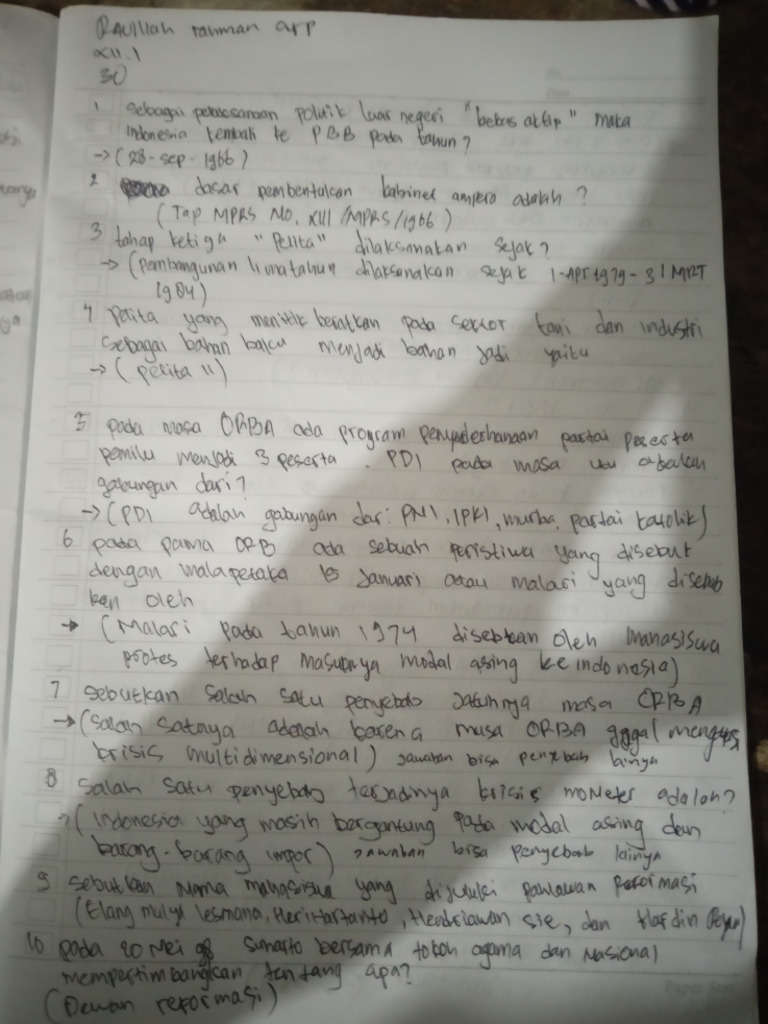 Raulliah rahman arp
XII.1
30
1 sebagai pelaksanaan politik luar negeri "bebas aktip" maka
Indonesia kembali ke PBB pada tahun?
→ (28-sep-1966)
2 dasar pembentukan kabinet ampera adalah?
(Tap MPRS NO. XIII/MPRS/1966)
3 tahap ketiga "Pelita" dilaksanakan sejak?
→ (pembangunan lima tahun dilaksanakan sejak 1-APr 1979-31 MRT
1984)
4 pelita yang menitik beratkan pada sektor tani dan industri
sebagai bahan baku menjadi bahan jadi yaitu
→ (pelita II)
5 pada masa ORBA ada program penyederhanaan partai peserta
pemilu menjadi 3 peserta. PDI pada masa itu adalah
gabungan dari?
→ (PDI adalah gabungan dari: PNI, IPKI, murba, partai katolik)
6 pada pama ORB ada sebuah peristiwa yang disebut
dengan malapetaka 15 Januari atau malari yang disebab
kan oleh
→ (Malari pada tahun 1974 disebabkan oleh mahasiswa
protes terhadap masuknya modal asing ke indonesia)
7 sebutkan salah satu penyebab jatuhnya masa ORBA
→ (salah satunya adalah karena masa ORBA gagal
krisis multidimensional) jawaban bisa penyebab lainya
8 salah satu penyebab terjadinya krisis moneter adalah?
→ (Indonesia yang masih bergantung pada modal asing dan
barang-barang impor) jawaban bisa penyebab lainya
9 sebutkan nama mahasiswa yang dijuluki pahlawan reformasi
(Elang mulya lesmana, Heri Hartanto, Hendriawan sie, dan
10 pada 20 Mei 98 suharto bersama tokoh agama dan nasional
mempertimbangkan tentang apa?
(Dewan reformasi)